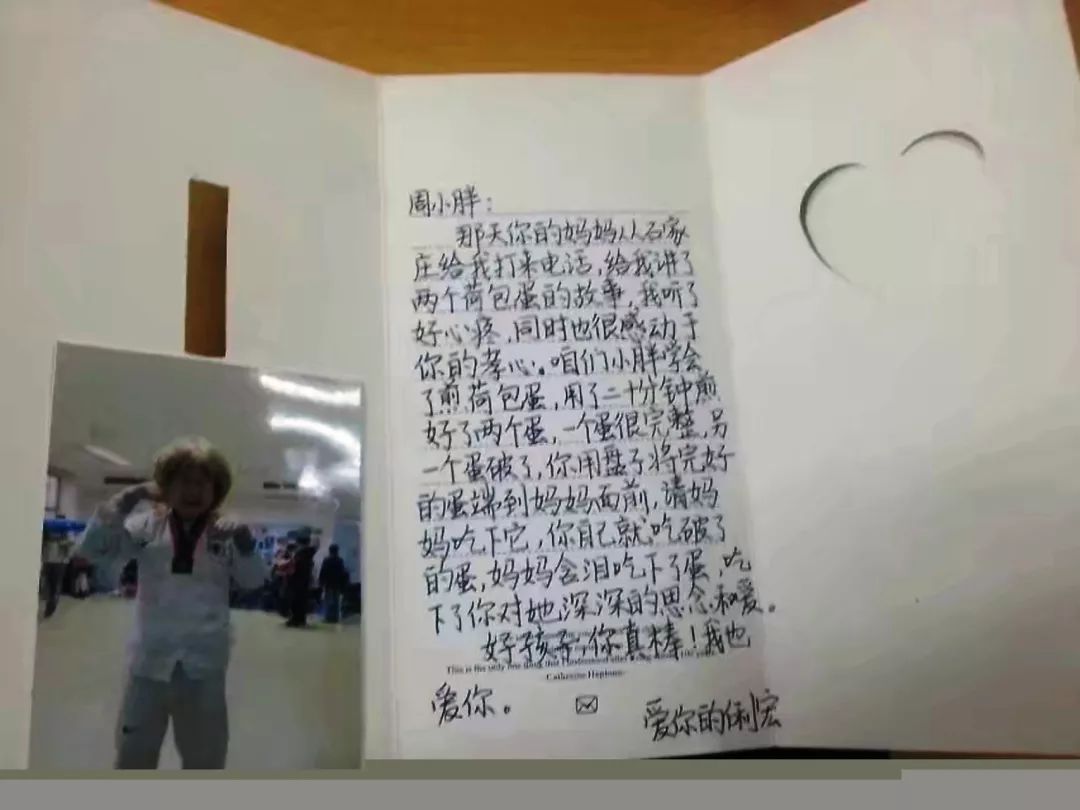 周小胖：
那天你的妈妈从石家
庄给我打来电话，给我讲了
两个荷包蛋的故事，我听了
好心疼，同时也很感动于
你的孝心。咱们小胖学会
了煎荷包蛋，用了二十分钟煎
好了两个蛋，一个蛋很完整，另
一个蛋破了，你用盘子将完好
的蛋端到妈妈面前，请妈
妈吃下它，你自己就吃破了
的蛋，妈妈含泪吃下了蛋，吃
下了你对她深深的思念和爱。
好孩子，你真棒！我也
This is the only
爱你。
爱你的俐宏